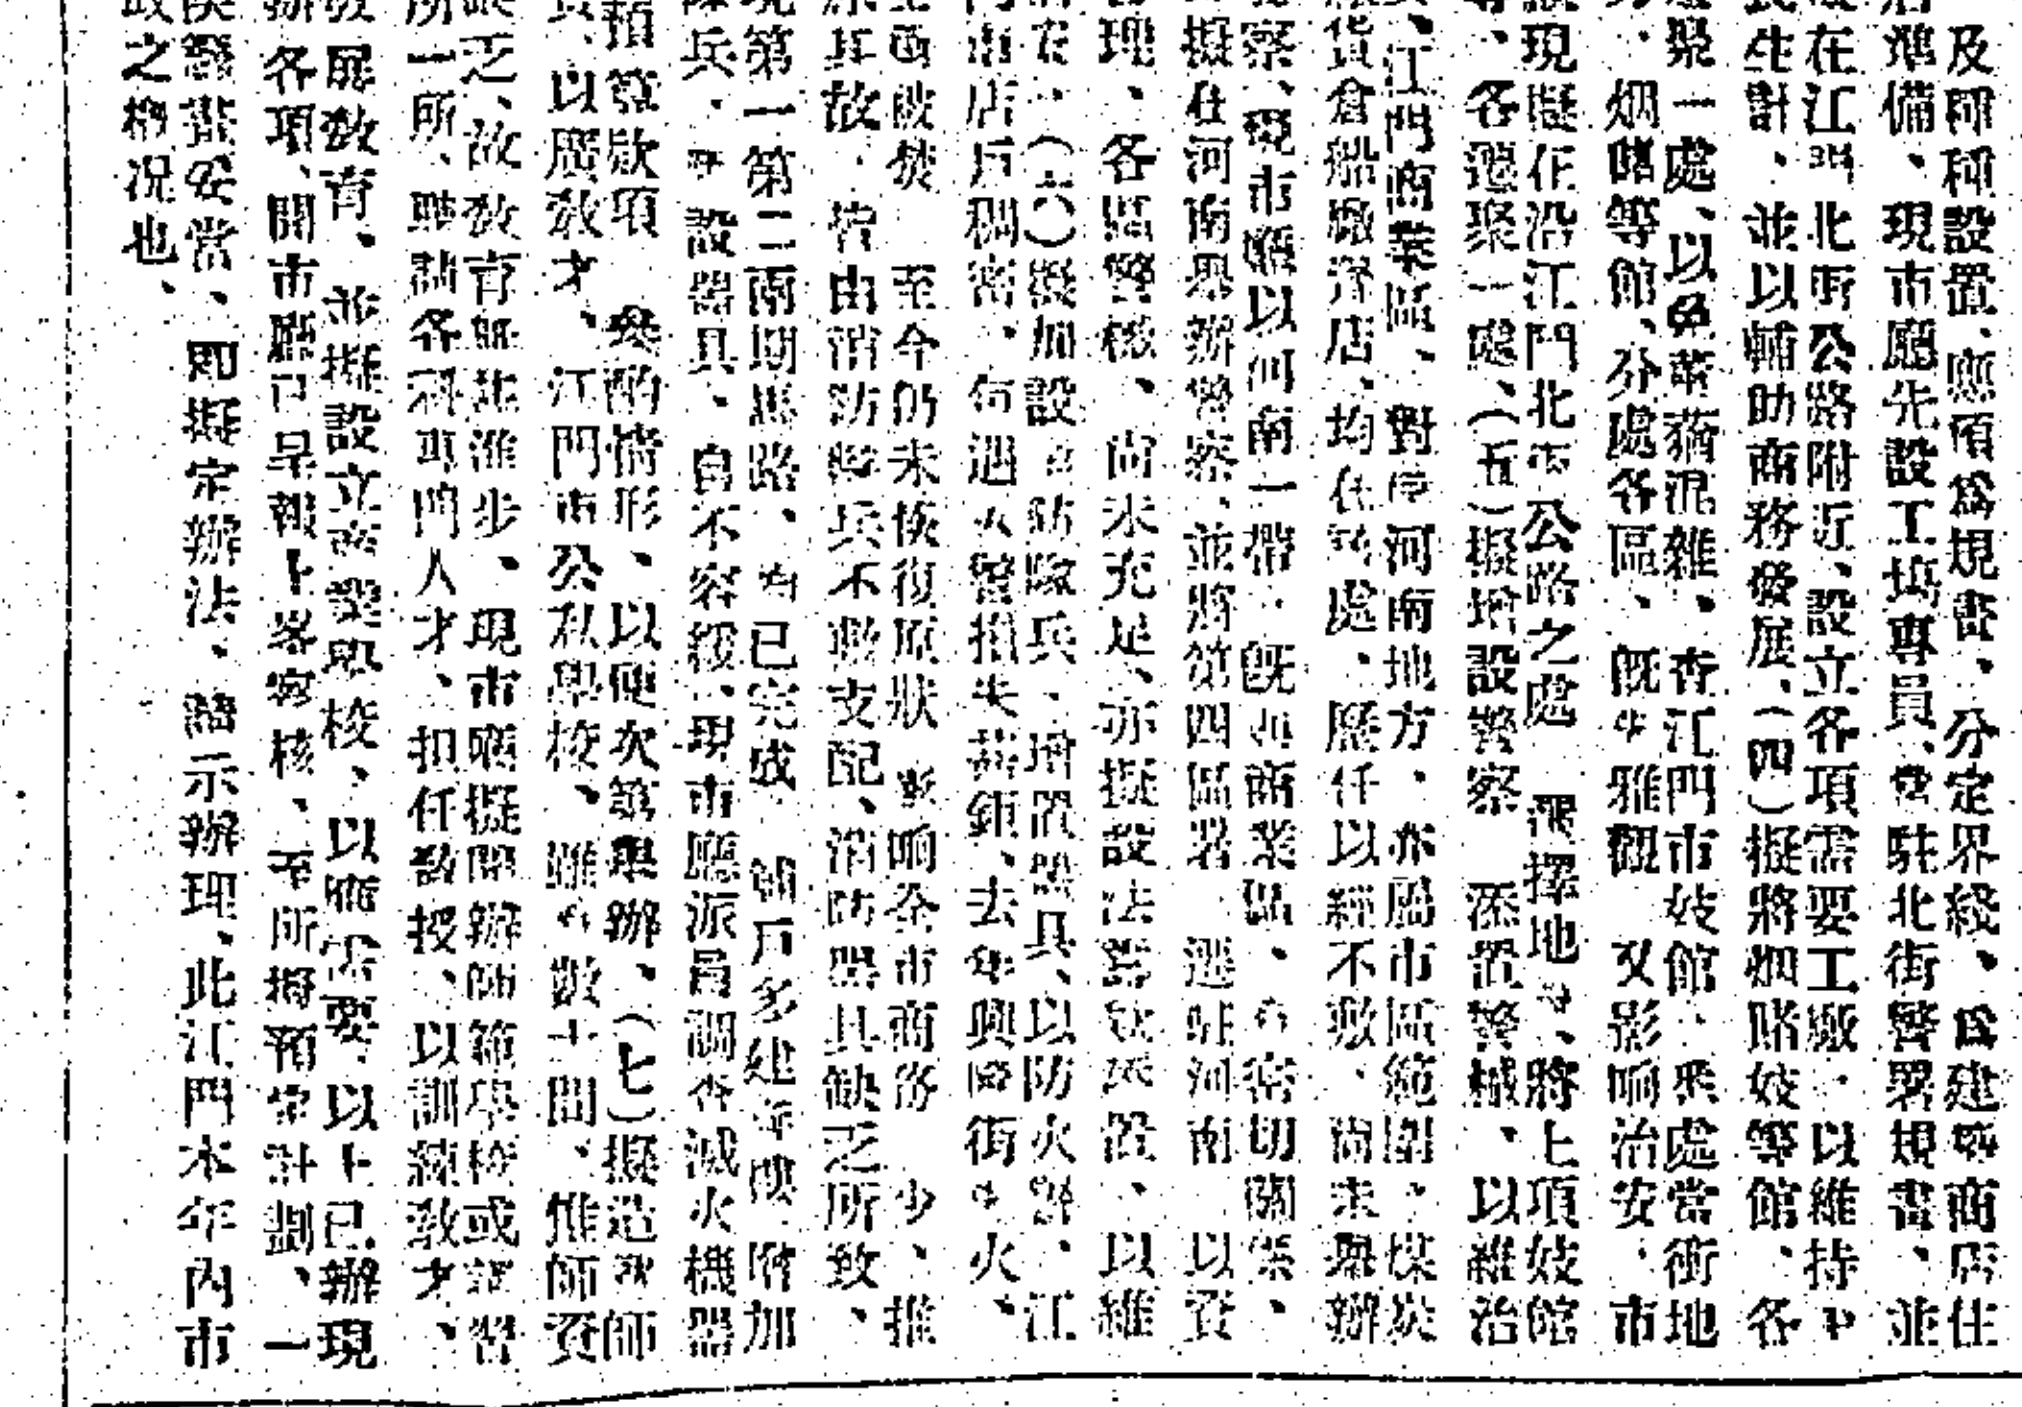 及種種設置、應須爲規畫、分定界綫、爲建等商店住
準備、現市廳先設工塲專員、常駐北街警署規畫、並
在江門北街公路附近、設立各項需要工廠、以維持中
民生計、並以輔助商務發展、(四)擬將烟賭妓等館、各
聚一處、以免薰蕕混雜、查江門市妓館、是處當街地
、烟賭等館、分處各區、旣失雅觀 又影响治安、市
現擬在沿江門北街公路之處 選擇地、將上項妓館
、各遷聚一處、(五)擬增設警察 添置警械、以維治
、江門商業區、對岸河南地方、亦屬市區範圍、煤炭
貨倉船廠客店、均在該處、歷任以經不敷、尚未舉辦
察、現市廳以河南一帶、旣如商業區、有密切關係、
擬在河南舉辦警察、並將第四區署 遷駐河南 以資
理、各區警械、尚未充足、亦擬設法籌欵添置、以維
安、(六)擬加設消防隊兵、增置器具、以防火警、江
市店戶稠密、每遇火警損失甚鉅、去年興隆街失火、
被焚 至今仍未恢復原狀 影响全市商務 不少、推
原其故、皆由消防隊兵不敷支配、消防器具缺乏所致、
現第一第二兩期馬路、均已完成 舖戶多建高樓 附加
隊兵、設器具、自不容緩、現市廳派員調查滅火機器
預算欵項 參酌情形、以便次第舉辦、(七)擬造就師
資、以廣敎才、江門市公私學校、雖有數十間、惟師資
缺乏、故敎育無甚進步、現市廳擬開辦師範學校或講習
所一所、聘請各科專門人才、担任敎授、以訓練敎才、
發展敎育、並擬設立商業學校、以應需要、以上已辦現
辦各項、開市廳已呈報上峯察核、至所擬預定計劃、一
俟籌畫妥當、卽擬定辦法、請示辦理、此江門本年內市
政之槪况也、